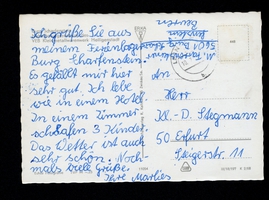 Ich grüße Sie aus
meinem Ferienlager
Burg Scharfenstein.
Es gefällt mir hier
sehr gut. Ich lebe
wie in einem Hotel.
In einem Zimmer
schlafen 3 Kinder.
Das Wetter ist auch
sehr schön. Noch-
mals viele Grüße.
Ihre Marlies
An
Herr
Kl.-D. Stegmann
50 Erfurt
Steigerstr. 11